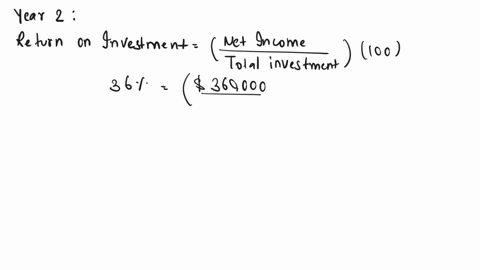 Year 2 :
Return on Investment = ( Net Income / Total investment ) (100)
36% = ( $ 360000